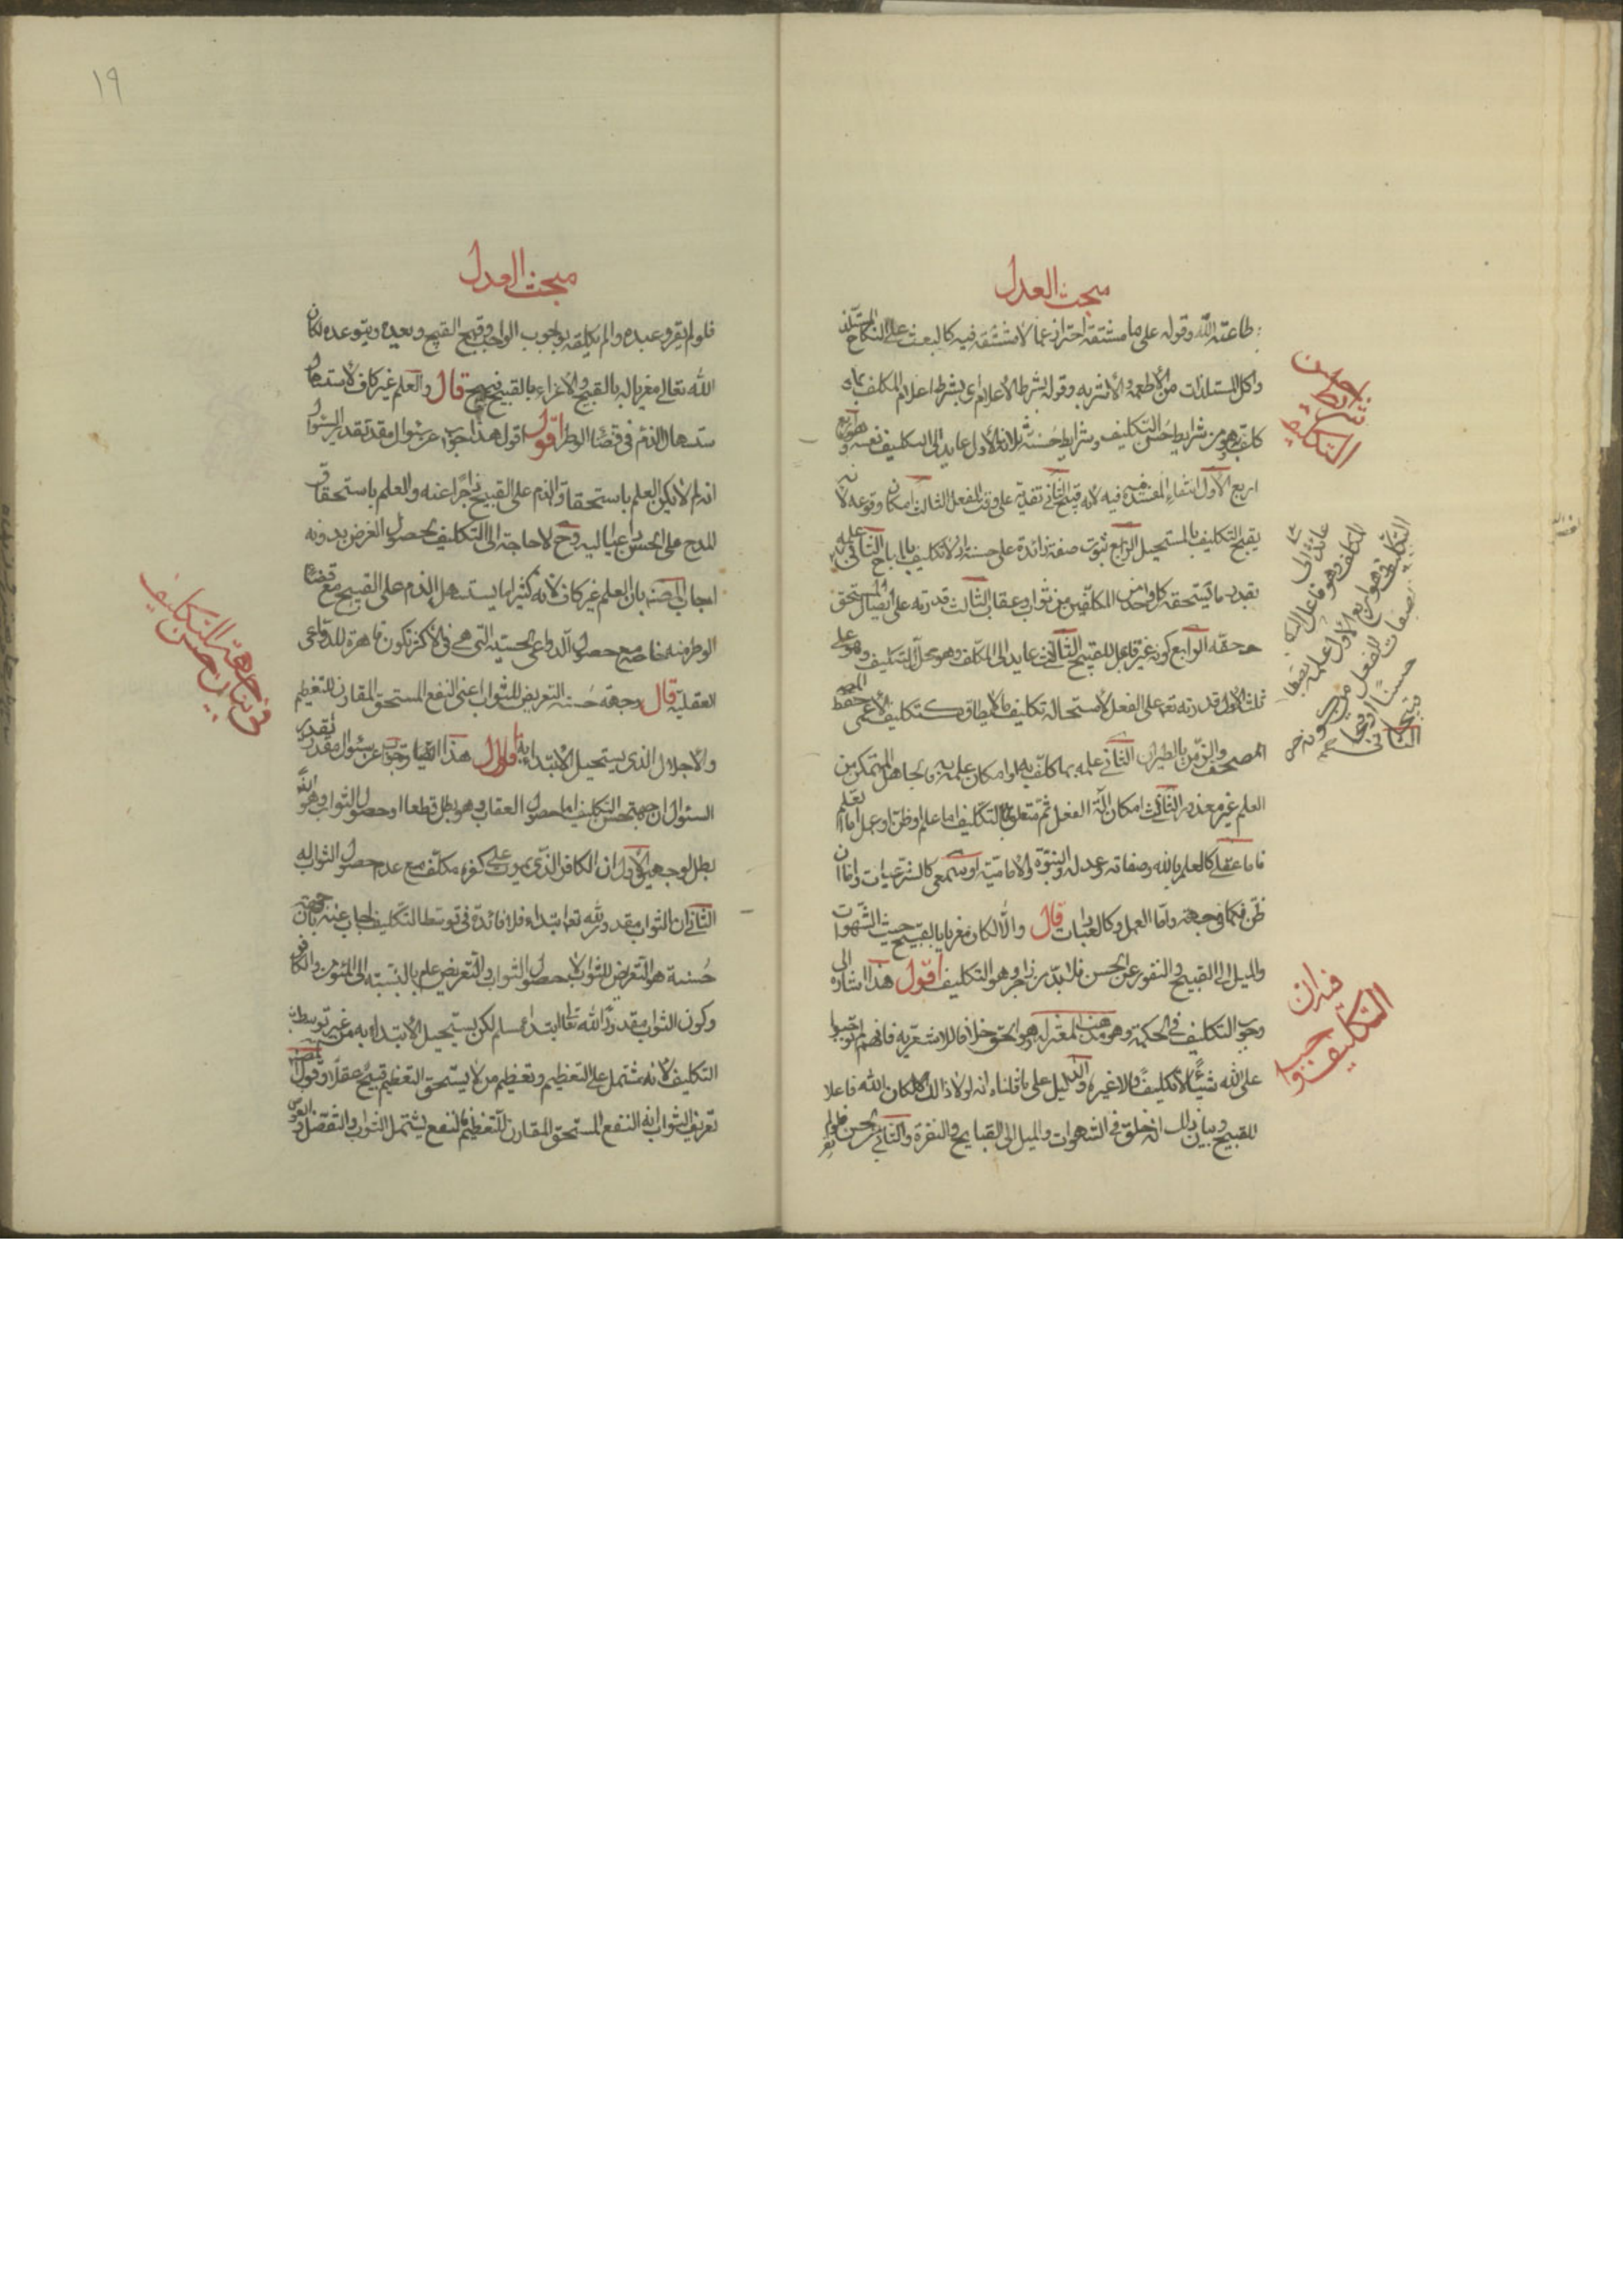 مبحث العدل
طاعته لله وقوله على ما مشتقة احتراز عما لا مشقة فيه كالبعث على النكاح المستلذ
واكل المستلذات من الاطعمة والاشربة وقوله بشرط الاعلام اى بشرط اعلام المكلف بما
كلف به وهو من شرايط حسن التكليف وشرايط حسنه ثلاثة الاول عايد الى التكليف نفسه وهو اربع
اربع الاول انتفاء المفسدة فيه لانه قبيح الثانى تقديمه على وقت الفعل الثالث امكان وقوعه لانه
يقبح التكليف بالمستحيل الرابع ثبوت صفة زائدة على حسنه اذ لا تكليف بالمباح الثانى علمه
بقدر ما يستحقه كل واحد من المكلفين من ثواب وعقاب الثالث قدرته على ايصال المستحق
حقه الرابع كونه غير فاعل للقبيح الثالث عايد الى المكلف وهو محل التكليف وهو على
ثلث الاول قدرته على الفعل لاستحالة تكليف ما لا يطاق كتكليف الاعمى
المصحف والزمن بالطيران الثانى علمه بما كلف به او امكان علمه به فالجاهل المتمكن من
العلم غير معذور الثالث امكان آلة الفعل ثم متعلق التكليف اما علم او ظن او عمل اما العلم
فاما عقلى كالعلم بالله وصفاته وعدله والنبوة والامامة او سمعى كالشرعيات واما
ظن فكما فى جهة واما العمل وكالعبادات قال والا لكان مغريا بالقبيح حيث الشهوات
والميل الى القبيح والنفور عن الحسن فلا بد من زاجر وهو التكليف اقول هذا اشارة الى
وجوب التكليف فى الحكمة وهو مذهب المعتزلة وهو الحق خلافا للاشعرية فانهم لم يوجبوا
على الله شيئا لا تكليفا ولا غيره والدليل على ما قلناه انه لولا ذلك لكان الله فاعلا
للقبيح وبيان ذلك انه خلق فى الشهوات والميل الى القبايح والنفرة والتأبى عن الحسن فلو لم
شرائط حسن
التكليف
عائد الى
المكلف وهو فاعل
التكليف وهو اربع الاول علمه
بصفات الفعل من كونه
حسنا او قبيحا
الثانى
فى ان
التكليف واجب
١٩
مبحث العدل
فلو لم يقر عبده والم يكلفه بوجوب الواجب وقبح القبيح وبعده ويتوعده لكان
الله تعالى مغريا له بالقبيح والاغراء بالقبيح قبيح قال والعلم غير كاف لاستسهال
ستسهال الذم فى قضاء الوطر اقول اقول هذا جواب عن سؤال مقدر تقدير السؤال
انه لم لا يكون العلم باستحقاق الذم على القبيح زاجرا عنه والعلم باستحقاق
المدح على الحسن داعيا اليه وح لا حاجة الى التكليف لحصول الغرض بدونه
اجاب المصنف بان العلم غير كاف لانه كثيرا ما يستسهل الذم على القبيح مع قضاء
الوطر منه خاصة مع حصول الدواعى الحسية التى هى فى الاكثر تكون قاهرة للدواعى
العقلية قال وجهة حسنه التعريض للثواب اعنى النفع المستحق المقارن للتعظيم
والاجلال الذى يستحيل الابتداء به اقول هذا ايضا جواب عن سؤال مقدر تقدير
السؤال ان جهة حسن التكليف اما حصول العقاب وهو بطل قطعا او حصول الثواب وهو
بطل لوجهين الاول ان الكافر الذى يموت على كفره مكلف مع عدم حصول الثواب له
الثانى ان الثواب مقدور لله تعالى ابتداء فلا فائدة فى توسط التكليف اجاب عنه بان جهة
حسنه هو التعريض للثواب لا حصول الثواب والتعريض عام بالنسبة الى المؤمن والكافر
وكون الثواب مقدورا لله تعالى ابتداء مسلم لكن يستحيل الابتداء به من غير توسط
التكليف لانه مشتمل على التعظيم وتعظيم من لا يستحق التعظيم قبيح عقلا وقول المصنف
تعريف الثواب انه النفع المستحق المقارن للتعظيم فالنفع يشتمل الثواب والتفضل والعوض
فى بيان جهة
حسن التكليف